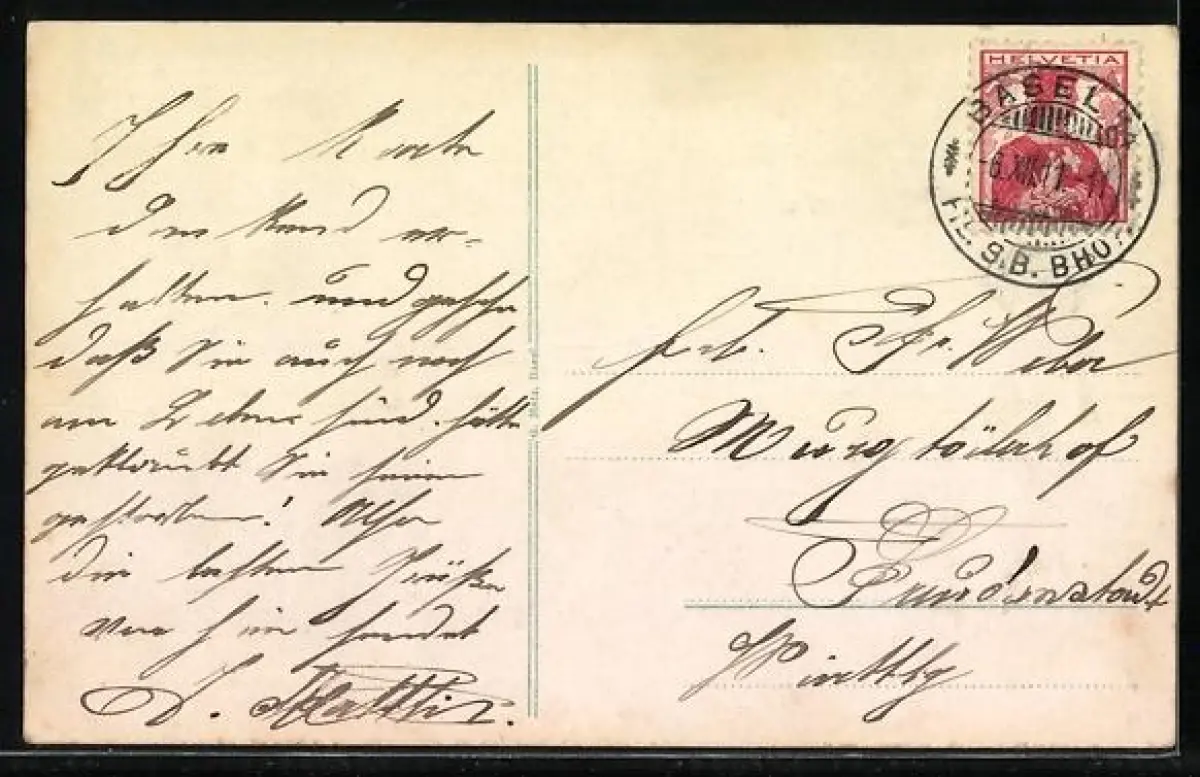 Ihre Karte
dankend er-
halten. und gesehen
daß Sie auch noch
am Leben sind. hätte
geklaubt Sie seien
gestorben! Also
die besten Grüße
von hier sendet
HELVETIA
BASEL
-6.XII.11.
FIL. S.B. BHOF.
Frl. Fr. Weber
Freudenstadt
Württbg